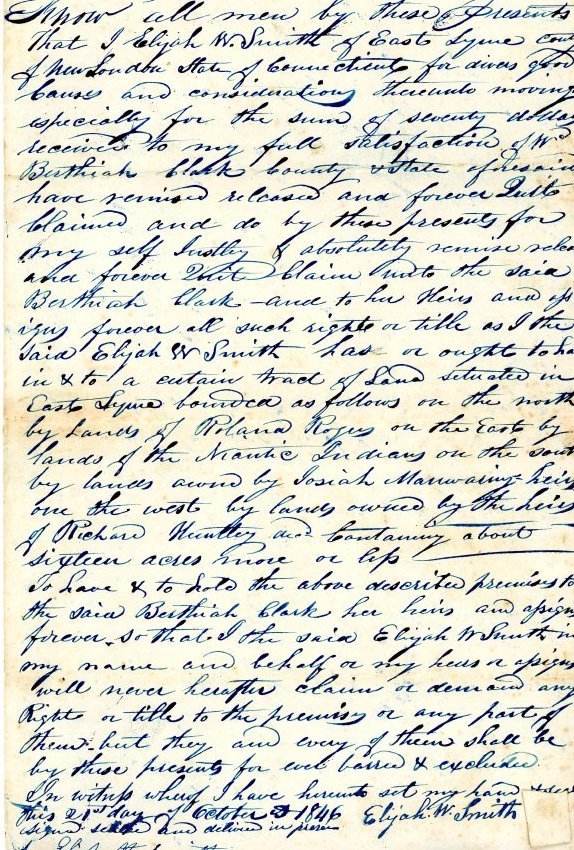 Know all men by these Presents
that I Elijah W. Smith of East Lyme coun
of New London State of Connecticut for divers good
Causes and considerations thereunto moving
especially for the sum of seventy dollar
received to my full satisfaction of
Berthiah Clark County & State aforesaid
have remised released and forever Quit
Claimed and do by these presents for
my self Justly & absolutely remise relea
and forever Quit Claim unto the said
Berthiah Clark - and to her Heirs and ass
igns forever all such right or title as I the
said Elijah W Smith has or ought to ha
in & to a certain tract of Land situated in
East Lyme bounded as follows on the north
by Lands of Roland Roges on the East by
lands of the Niantic Indians on the sout
by lands owned by Josiah Manwaring heirs
one the west by lands owned by the heirs
of Richard Huntley decd Containing about
sixteen acres more or less
To have & to hold the above described premises to
the said Berthiah Clark her heirs and assigns
forever so that I the said Elijah W Smith in
my name and behalf or my heirs or assigns
will never herafter claim or demand any
Right or title to the premises or any part of
them - but they and every of them shall be
by these presents for ever barred & excluded
In witness wherof I have hereunto set my hand & seal
this 21st day of October 1846 Elijah. W. Smith
signed sealed and delived in presen